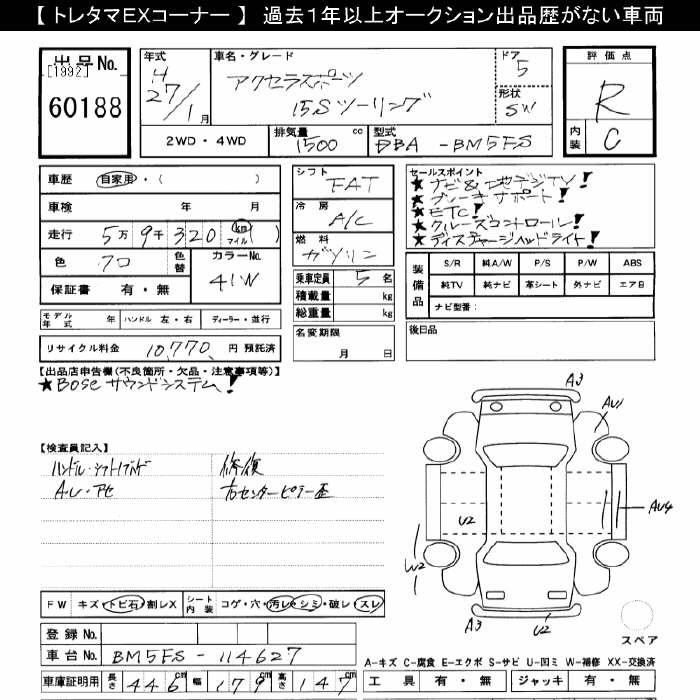 【 トレタマEXコーナー 】 過去１年以上オークション出品歴がない車両
出品No.
[1992]
60188
年式
27/1月
車名・グレード
アクセラスポーツ
15Sツーリング
ドア
5
形状
SW
評価点
R
内装
C
2WD・4WD
排気量
1500 cc
型式
DBA -BM5FS
車歴 自家用・( )
車検 年 月
走行 5万9千320 km マイル ( )
色 クロ 色替
カラーNo.
41W
保証書 有・無
モデル年式 年 ハンドル 左・右 ディーラー・並行
リサイクル料金 10,770 円 預託済
シフト
FAT
冷房
A/C
燃料
ガソリン
乗車定員 5 名
積載量 kg
総重量 kg
名変期限
月 日
セールスポイント
★ナビ&地デジTV!
★ブレーキサポート!
★ETC!
★クルーズコントロール!
★ディスチャージヘッドライト!
装備品
S/R 純A/W P/S P/W ABS
純TV 純ナビ 革シート 外ナビ エアB
ナビ型番：
後日品
【出品店申告欄(不良箇所・欠品・注意事項等)】
★BOSEサウンドシステム!
【検査員記入】
修復
右センターピラー歪
A3
AU1
AU4
U2
W2
A3
U2
スペア
FW キズ・トビ石・割レX
シート内装 コゲ・穴・汚レ・シミ・破レ・スレ
登録No.
車台No. BM5FS-114627
車庫証明用 長さ 446cm 幅 179cm 高さ 147cm
A-キズ C-腐食 E-エクボ S-サビ U-凹ミ W-補修 XX-交換済
工具 有・無 ジャッキ 有・無